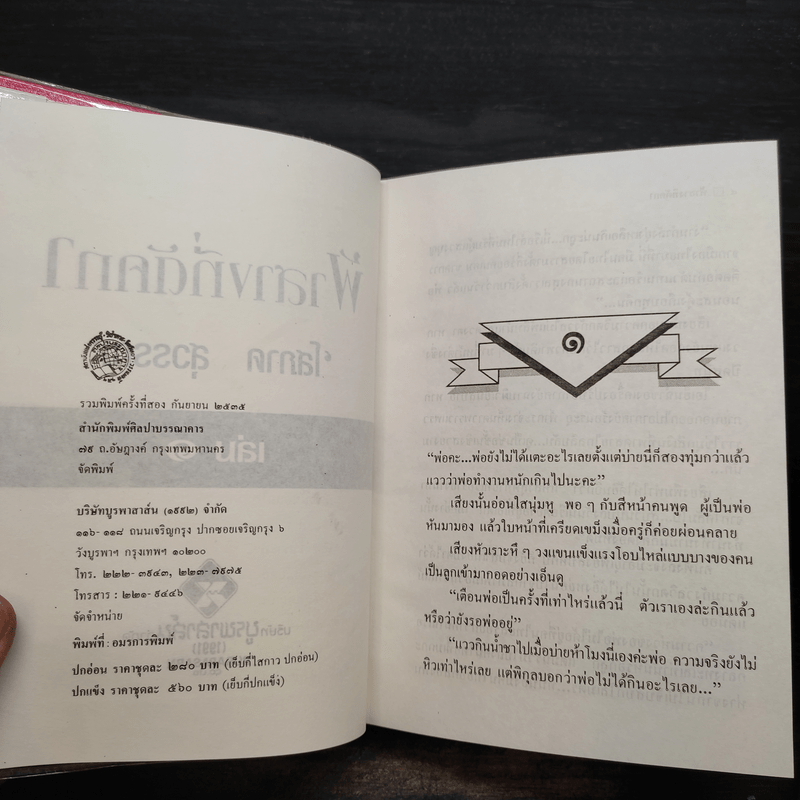 รวมพิมพ์ครั้งที่สอง กันยายน ๒๕๓๕
สำนักพิมพ์ศิลปาบรรณาคาร
๗๙ ถ.อัษฎางค์ กรุงเทพมหานคร
จัดพิมพ์
บริษัทบูรพาสาส์น (๑๙๙๒) จำกัด
๑๑๖-๑๑๘ ถนนเจริญกรุง ปากซอยเจริญกรุง ๖
วังบูรพาฯ กรุงเทพฯ ๑๐๒๐๐
โทร. ๒๒๒-๓๙๔๓, ๒๒๓-๗๙๗๕
โทรสาร : ๒๒๑-๙๔๔๖
จัดจำหน่าย
พิมพ์ที่ : อมรการพิมพ์
ปกอ่อน ราคาชุดละ ๒๘๐ บาท (เย็บกี่ไสกาว ปกอ่อน)
ปกแข็ง ราคาชุดละ ๕๖๐ บาท (เย็บกี่ปกแข็ง)
๑
“พ่อคะ...พ่อยังไม่ได้แตะอะไรเลยตั้งแต่บ่ายนี่ก็สองทุ่มกว่าแล้ว
แววว่าพ่อทำงานหนักเกินไปนะคะ”
เสียงนั้นอ่อนใสนุ่มหู พอ ๆ กับสีหน้าคนพูด ผู้เป็นพ่อ
หันมามอง แล้วใบหน้าที่เครียดเขม็งเมื่อครู่ก็ค่อยผ่อนคลาย
เสียงหัวเราะหึ ๆ วงแขนแข็งแรงโอบไหล่แบบบางของคน
เป็นลูกเข้ามากอดอย่างเอ็นดู
“เตือนพ่อเป็นครั้งที่เท่าไหร่แล้วนี่ ตัวเราเองล่ะกินแล้ว
หรือว่ายังรอพ่ออยู่”
“แววกินน้ำชาไปเมื่อบ่ายห้าโมงนี่เองค่ะพ่อ ความจริงยังไม่
หิวเท่าไหร่เลย แต่พิกุลบอกว่าพ่อไม่ได้กินอะไรเลย...”